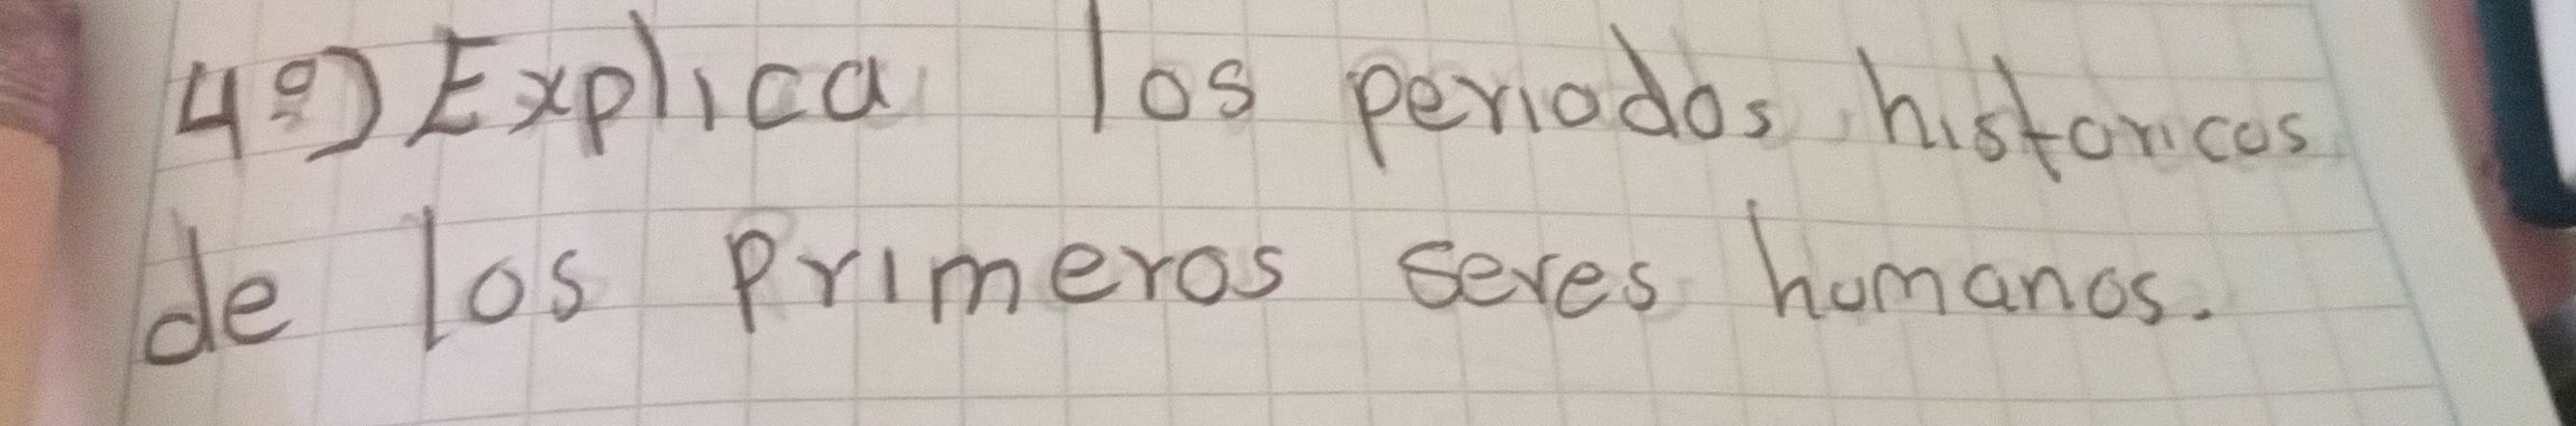 4º) Explica los periodos historicos
de los primeros seres humanos.